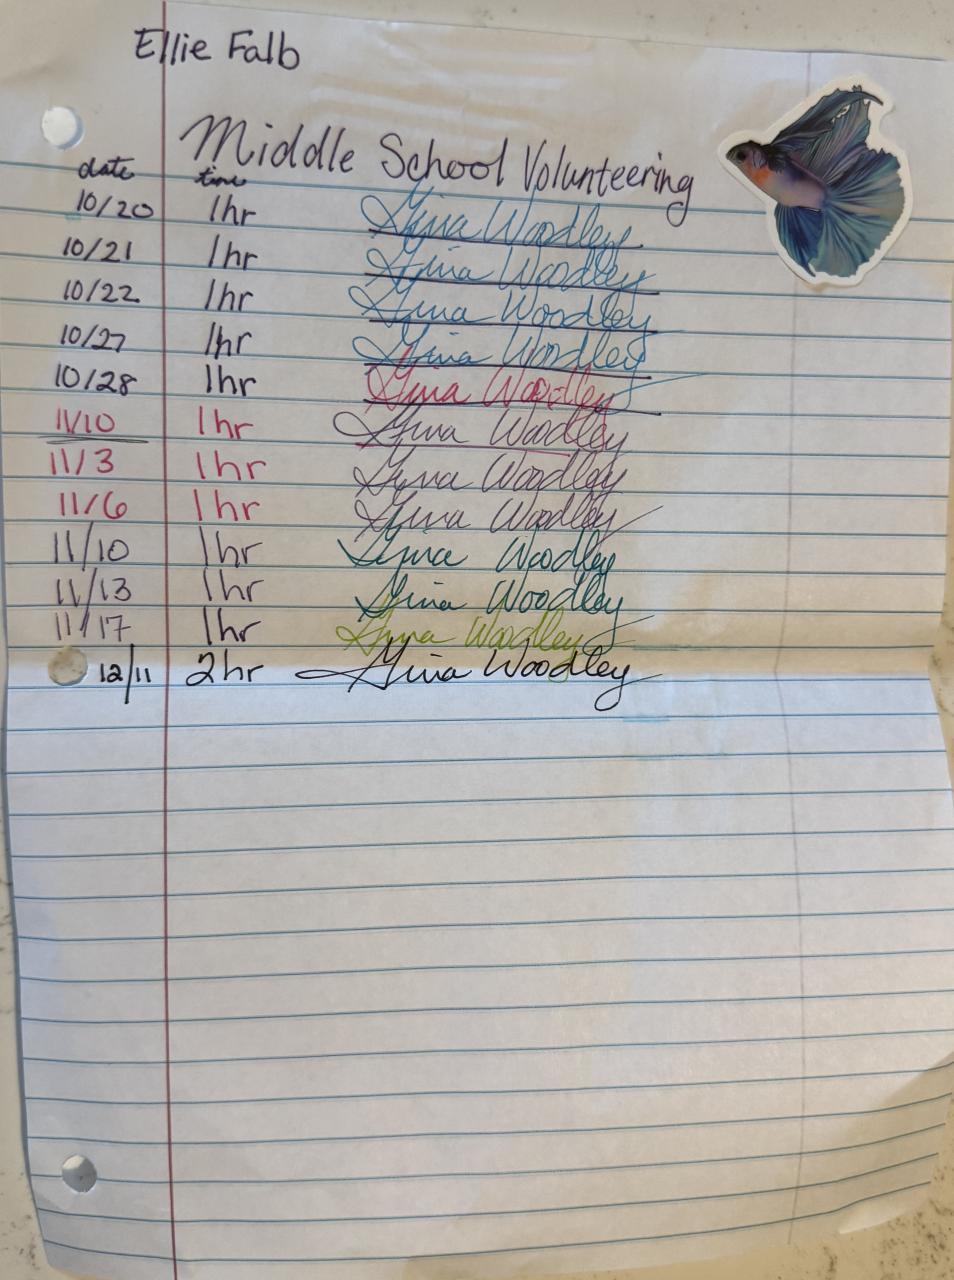 Ellie Falb
Middle School Volunteering
date time
10/20 1hr Gina Woodley
10/21 1hr Gina Woodley
10/22 1hr Gina Woodley
10/27 1hr Gina Woodley
10/28 1hr Gina Woodley
11/10 1hr Gina Woodley
11/3 1hr Gina Woodley
11/6 1hr Gina Woodley
11/10 1hr Gina Woodley
11/13 1hr Gina Woodley
11/17 1hr Gina Woodley
12/11 2hr Gina Woodley